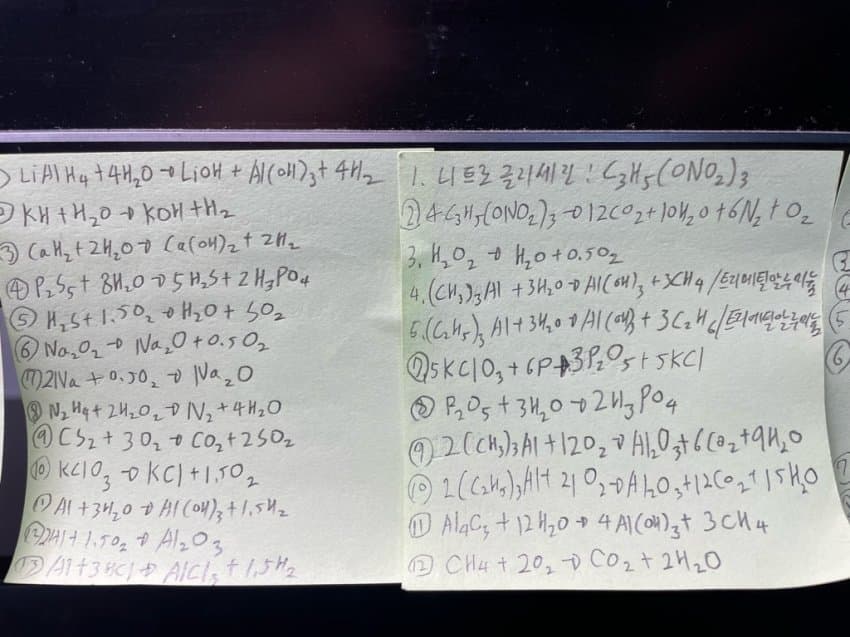 LiAlH4 + 4H2O → LiOH + Al(OH)3 + 4H2
② KH + H2O → KOH + H2
③ CaH2 + 2H2O → Ca(OH)2 + 2H2
④ P2S5 + 8H2O → 5H2S + 2H3PO4
⑤ H2S + 1.5O2 → H2O + SO2
⑥ Na2O2 → Na2O + 0.5O2
⑦ 2Na + 0.5O2 → Na2O
⑧ N2H4 + 2H2O2 → N2 + 4H2O
⑨ CS2 + 3O2 → CO2 + 2SO2
⑩ KClO3 → KCl + 1.5O2
⑪ Al + 3H2O → Al(OH)3 + 1.5H2
⑫ 2Al + 1.5O2 → Al2O3
⑬ Al + 3HCl → AlCl3 + 1.5H2
1. 니트로글리세린 : C3H5(ONO2)3
② 4C3H5(ONO2)3 → 12CO2 + 10H2O + 6N2 + O2
3. H2O2 → H2O + 0.5O2
4. (CH3)3Al + 3H2O → Al(OH)3 + 3CH4 / 트리메틸알루미늄
5. (C2H5)3Al + 3H2O → Al(OH)3 + 3C2H6 / 트리에틸알루미늄
⑦ 5KClO3 + 6P → 3P2O5 + 5KCl
⑧ P2O5 + 3H2O → 2H3PO4
⑨ 2(CH3)3Al + 12O2 → Al2O3 + 6CO2 + 9H2O
⑩ 2(C2H5)3Al + 21O2 → Al2O3 + 12CO2 + 15H2O
⑪ Al4C3 + 12H2O → 4Al(OH)3 + 3CH4
⑫ CH4 + 2O2 → CO2 + 2H2O
③
④
⑤
⑥